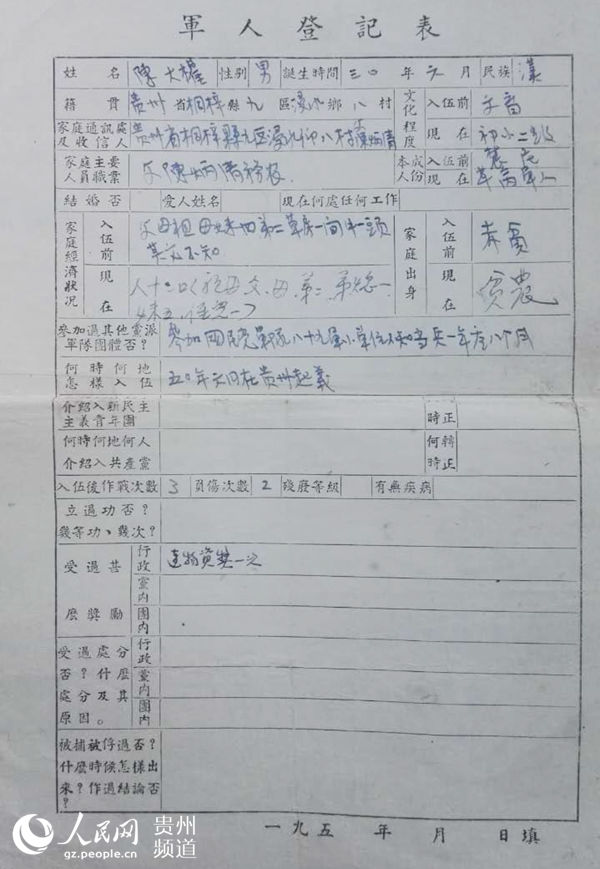 軍人登記表
姓名 陳大權 性别 男 誕生時間 三〇年六月 民族 漢
籍貫 贵州省桐梓縣九區 鄉八村 文化程度 入伍前 文盲
家庭通訊處及收信人 贵州省桐梓縣九区 八村 陳炳清 現在 初小二级
家庭主要人員職業 父陳炳清務农 本人成份 入伍前 貧农 現在 革命軍人
結婚否 愛人姓名 現在何處任何工作
家庭經濟狀况 入伍前 父母祖母 弟二草房一间牛一頭
其於不知
現在 人十口 祖母父、母、弟
妹五
家庭出身 入伍前 赤貧 現在 贫農
參加過其他黨派軍隊團體否? 參加国民党軍队八十九軍 单位不知当兵一年座八个月
何時何地怎樣入伍 五〇年六月在贵州起義
介紹入新民主主義青年團 時正
何時何地何人介紹入共產黨 何時轉正
入伍後作戰次數 3 負傷次數 2 殘廢等級 有無疾病
立過功否?幾等功、幾次?
受過甚麽獎勵 行政 物資奖一次
黨内
團内
受過處分否?什麽處分及其原因。 行政
黨内
團内
被捕被俘過否?什麽時候怎樣出來?作過結論否?
一九五 年 月 日填
人民网 贵州频道
gz.people.cn